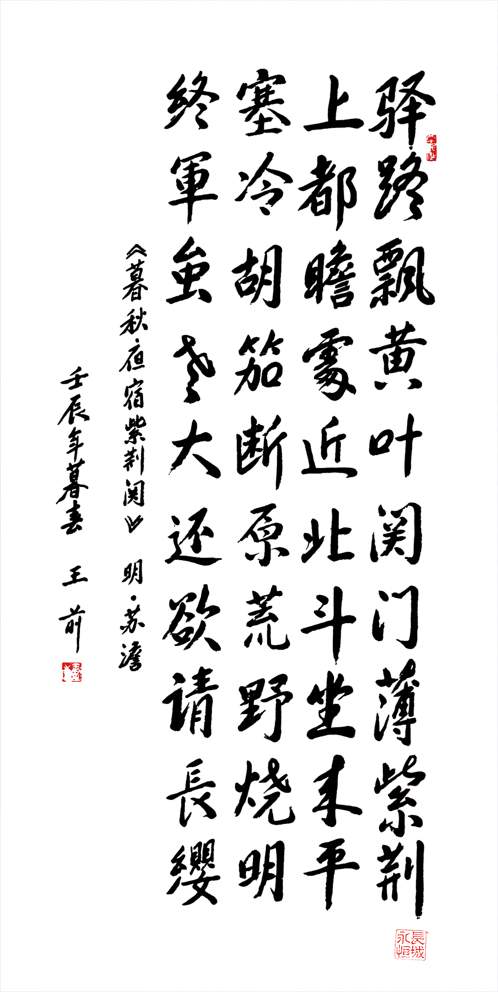 驿路飄黄叶関门薄紫荆
上都瞻處近北斗坐来平
塞冷胡笳断原荒野烧明
终軍虽老大还欲请長缨
《暮秋夜宿紫荆関》 明·苏澹
壬辰年暮春 王前
長城永恒